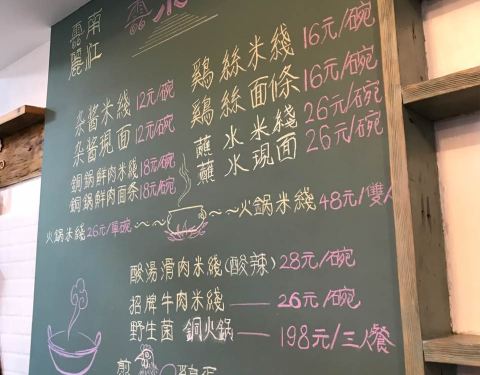 雲南
麗江
杂醬米綫 12元/碗
杂醬現面 12元/碗
銅鍋鮮肉米綫 18元/碗
銅鍋鮮肉面条 18元/碗
鷄絲米綫 16元/碗
鷄絲面條 16元/碗
蘸水米綫 26元/碗
蘸水現面 26元/碗
火鍋米綫 26元/單碗
火鍋米綫 48元/雙人
酸湯滑肉米綫(酸辣) 28元/碗
招牌牛肉米綫 — 26元/碗
野生菌 銅火鍋 — 198元/三人餐
煎